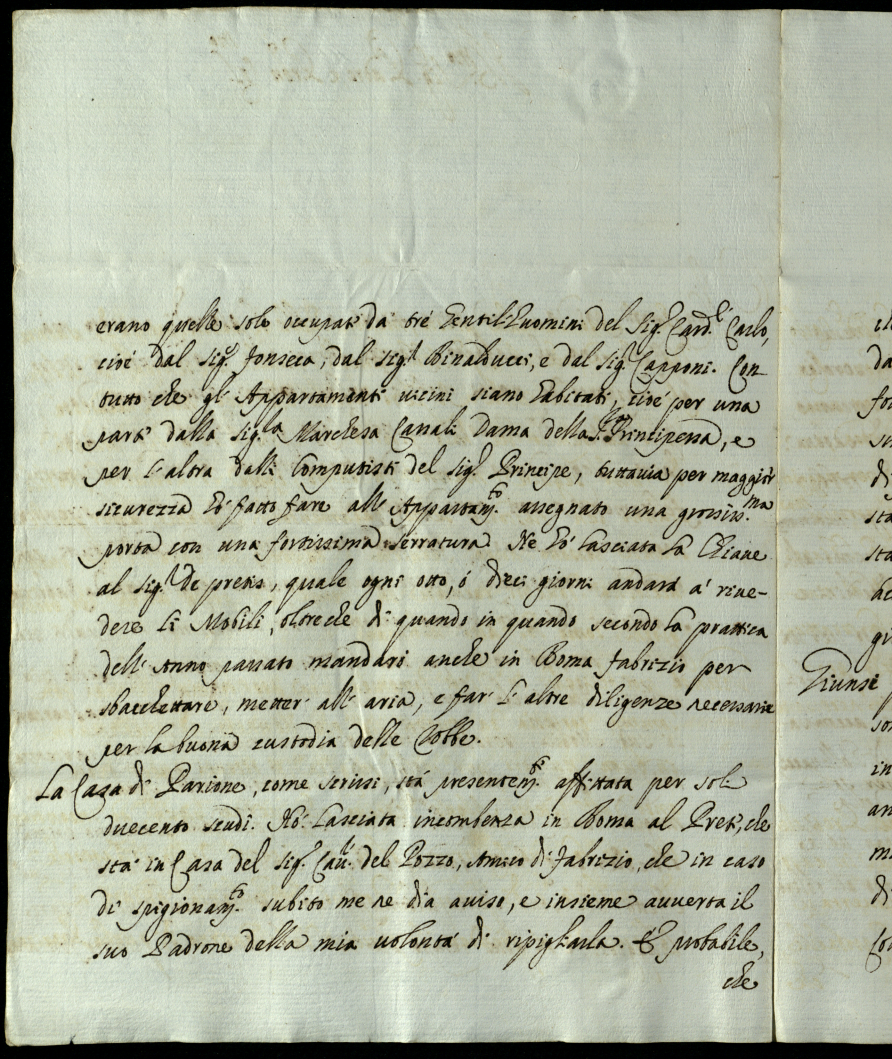 erano quelle sole occupate da tré Gentil'Huomini del Sig.r Card.l Carlo,
cioé dal Sig.r Fonseca, dal Sig.r Rinalducci, e dal Sig.r Capponi. Con
tutto che gl'Appartamenti uicini siano habitati, cioé per una
parte dalla Sig.ra Marchesa Canali Dama della S.ra Principessa, e
per l'altra dalli Computisti del Sig.r Principe, tuttauia per maggior
sicurezza hó fatto fare all'Appartam.to assegnato una grossiss.ma
porta con una fortissima serratura. Ne hó lasciata la Chiaue
al Sig.r de pretis, quale ogni otto, ó dieci giorni andará á riue-
dere li Mobili, oltreche di quando in quando secondo la prattica
dell'Anno passato mandaró anche in Roma Fabrizio per
sbacchettare, metter all'aria, e far l'altre diligenze necessarie
per la buona custodia delle Robbe.
La Casa di Parione, come scrissi, stá presentem.te affittata per soli
duecento scudi. Hó lasciata incombenza in Roma al Preti, che
stá in Casa del Sig.r Cau.r del Pozzo, Amico di Fabrizio, che in caso
di spigionam.to subito me ne dia auiso, e insieme auuerta il
suo Padrone della mia uolontá di ripigliarla. É probabile,
che
Giunse